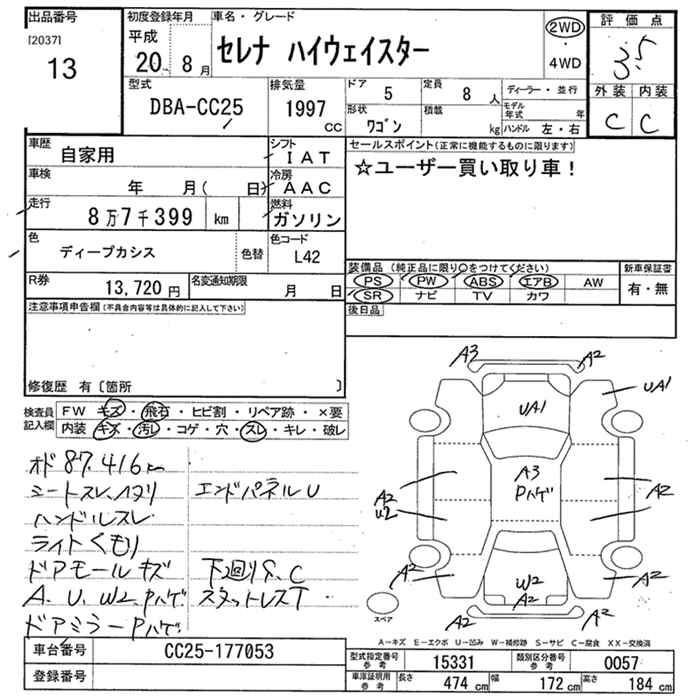 出品番号
[2037]
13
初度登録年月
平成
20年 8月
車名・グレード
セレナ ハイウェイスター
2WD
・
4WD
評価点
3.5
外装 内装
C C
型式
DBA-CC25
排気量
1997
CC
ドア
5
定員
8人
形状
ワゴン
積載
kg
ディーラー・並行
モデル年式 年
ハンドル 左・右
車歴
自家用
シフト
IAT
車検
年 月( 日)
冷房
AAC
走行
8万7千399 km
燃料
ガソリン
色
ディープカシス
色替
色コード
L42
R券
13,720円
名変通知期限
月 日
セールスポイント(正常に機能するものに限ります)
☆ユーザー買い取り車!
装備品(純正品に限り〇をつけてください)
PS PW ABS エアB AW
SR ナビ TV カワ
新車保証書
有・無
後日品
注意事項申告欄(不具合内容等は具体的に記入して下さい)
修復歴 有〔箇所 〕
検査員
記入欄
FW キズ・飛石・ヒビ割・リペア跡・×要
内装 キズ・汚レ・コゲ・穴・スレ・キレ・破レ
オド 87,416km
シートスレ、ハタリ エンドパネルU
ハンドルスレ
ライトくもり
ドアモールキズ 下廻りS、C
A、U、W2、Pハゲ スタットレスT
ドアミラーPハゲ
A3 A2
UA1 UA1
A3
Pハゲ
A2
U2
A2
A2 W2 A2
A2
A2 A2
スペア
A-キズ E-エクボ U-凹み W-補修跡 S-サビ C-腐食 XX-交換済
車台番号
CC25-177053
登録番号
型式指定番号
参考
15331
類別区分番号
参考
0057
車庫証明用
参考
長さ 474cm 幅 172cm 高さ 184cm